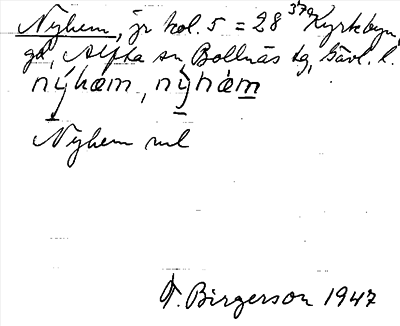 Nyhem, jr kol. 5 = 28 379 Kyrkbyn,
gd, Alfta sn, Bollnäs tg, Gävl. l.
nýhæm, nỳhæm
Nyhem ml
T. Birgerson 1947